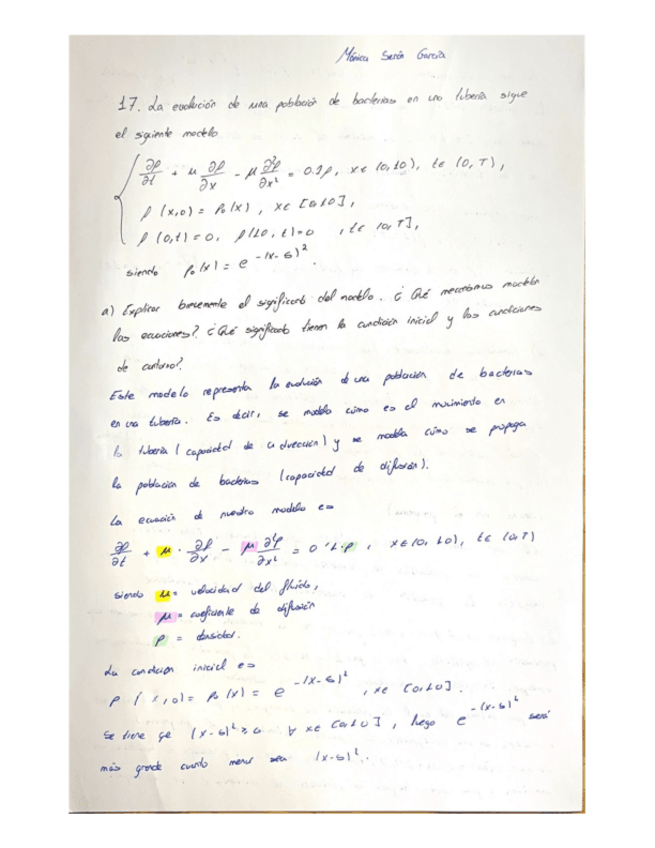 Mónica Serón García
17. La evolución de una población de bacterias en una tubería sigue
el siguiente modelo
∂ρ/∂t + u ∂ρ/∂x - μ ∂²ρ/∂x² = 0.1ρ, x∈(0,10), t∈(0,T),
ρ(x,0) = ρ₀(x), x∈[0,10],
ρ(0,t)=0, ρ(10,t)=0, t∈(0,T],
siendo ρ₀(x) = e^{-(x-5)²}.
a) Explicar brevemente el significado del modelo. ¿Qué mecanismos modelan
las ecuaciones? ¿Qué significado tienen la condición inicial y las condiciones
de contorno?
Este modelo representa la evolución de una población de bacterias
en una tubería. Es decir, se modela cómo es el movimiento en
la tubería (capacidad de advección) y se modela cómo se propaga
la población de bacterias (capacidad de difusión).
La ecuación de nuestro modelo es
∂ρ/∂t + u · ∂ρ/∂x - μ ∂²ρ/∂x² = 0'1·ρ, x∈(0,10), t∈(0,T)
siendo u = velocidad del fluido,
μ = coeficiente de difusión
ρ = densidad.
La condición inicial es
ρ(x,0) = ρ₀(x) = e^{-(x-5)²}, x∈[0,10].
Se tiene qe (x-5)² ≥ 0 ∀ x∈[0,10], luego e^{-(x-5)²} será
más grande cuanto menor sea (x-5)².